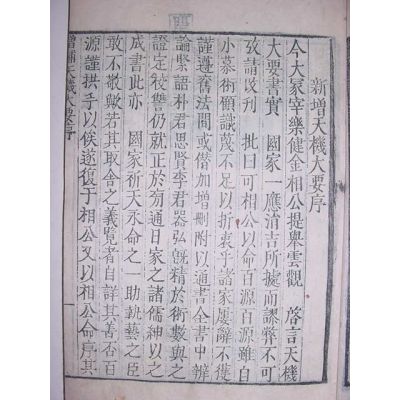 新增天機大要序
今大冢宰樂健金相公提舉雲觀 啓言天機
大要書實 國家一應涓吉所據而謬弊不可
攷請改刊 批曰可相公以命百源百源雖自
小慕術顧識蔑不足以折衷乎諸家屢辭不獲
謹遵舊法間或僭加增刪附以通書全書中辨
論緊語朴君思賢李君器弘旣精於術數與之
證定後讐仍就正於有通日家之諸儒紳以之
成書此亦 國家祈天永命之一助執藝之臣
敢不敬歟若其取舍之義覽者自詳其善否百
源謹拱手以俟遂復于相公又以相公命序其
增補天機大要序 一